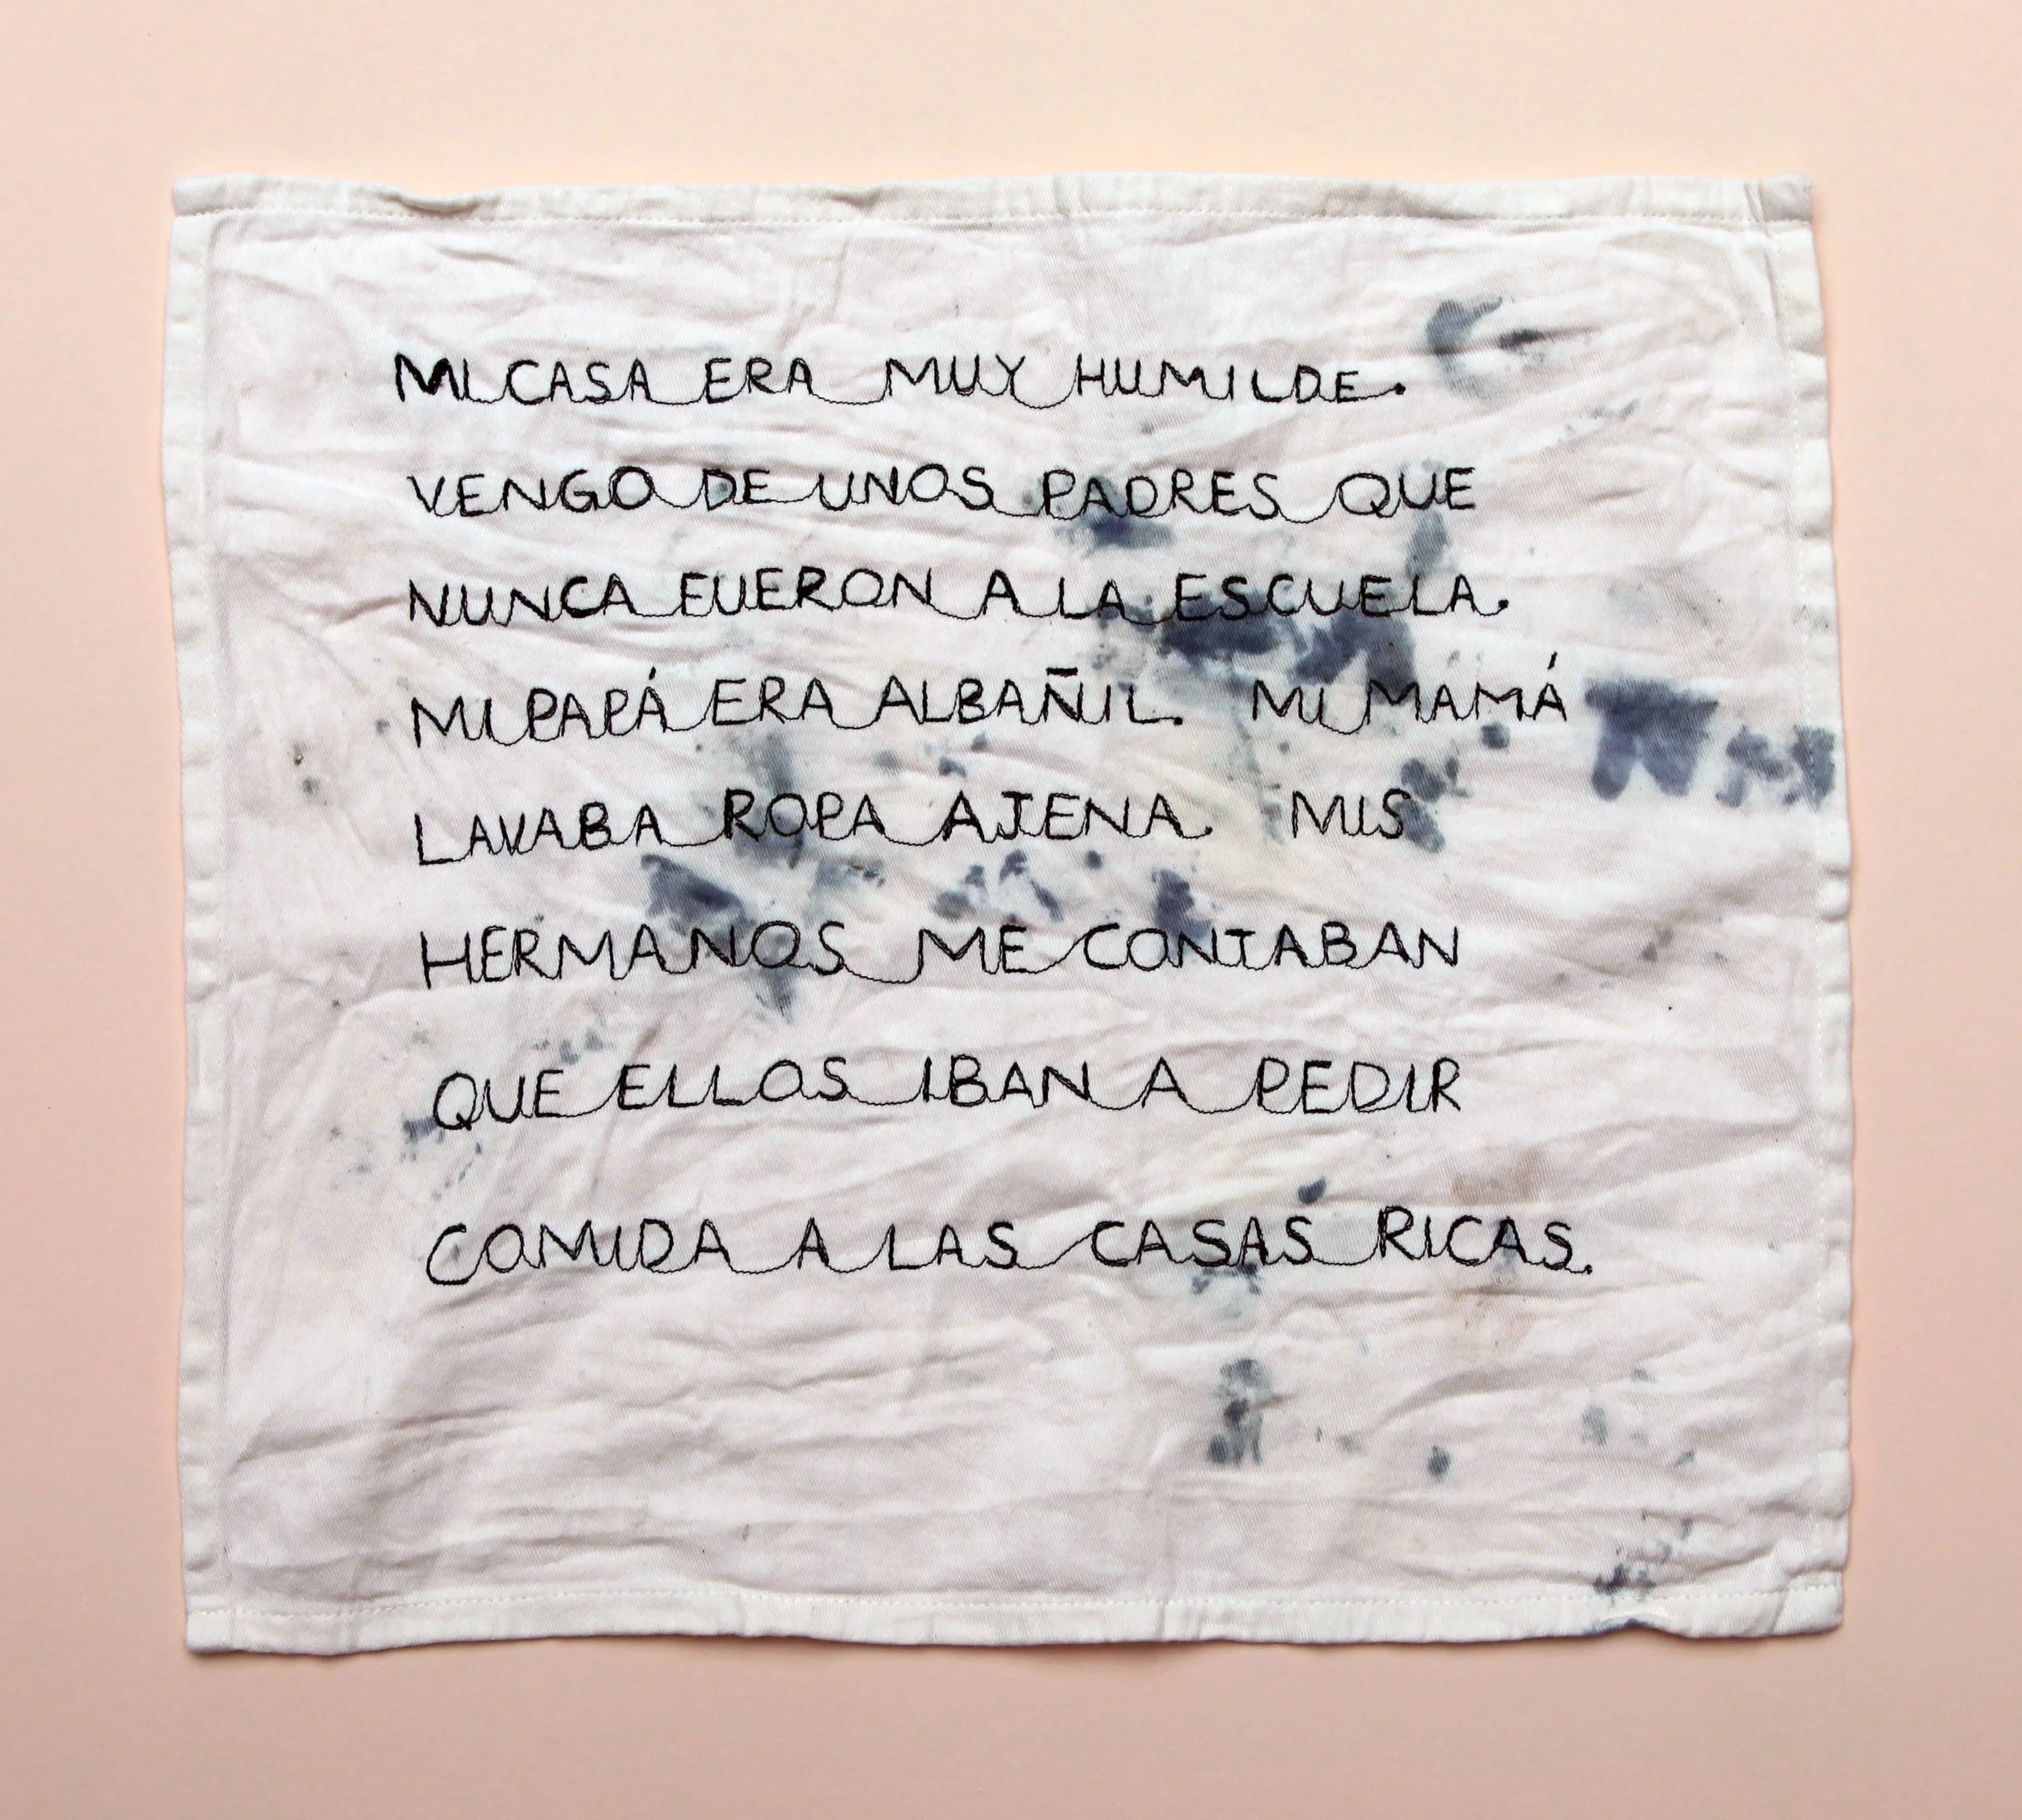 MI CASA ERA MUY HUMILDE.
VENGO DE UNOS PADRES QUE
NUNCA FUERON A LA ESCUELA.
MI PAPÁ ERA ALBAÑIL. MI MAMÁ
LAVABA ROPA AJENA. MIS
HERMANOS ME CONTABAN
QUE ELLOS IBAN A PEDIR
COMIDA A LAS CASAS RICAS.